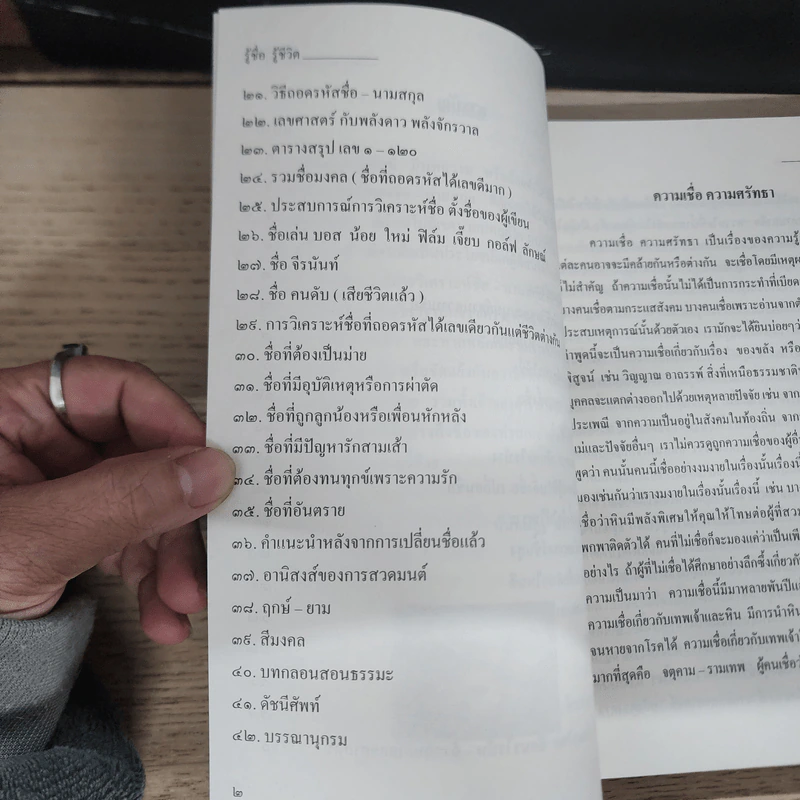 รู้ชื่อ รู้ชีวิต
๒๑. วิธีถอดรหัสชื่อ – นามสกุล
๒๒. เลขศาสตร์ กับพลังดาว พลังจักรวาล
๒๓. ตารางสรุป เลข ๑ – ๑๒๐
๒๔. รวมชื่อมงคล ( ชื่อที่ถอดรหัสได้เลขดีมาก )
๒๕. ประสบการณ์การวิเคราะห์ชื่อ ตั้งชื่อของผู้เขียน
๒๖. ชื่อเล่น บอส น้อย ใหม่ ฟิล์ม เจี๊ยบ กอล์ฟ ลักษณ์
๒๗. ชื่อ จีรนันท์
๒๘. ชื่อ คนดับ ( เสียชีวิตแล้ว )
๒๙. การวิเคราะห์ชื่อที่ถอดรหัสได้เลขเดียวกันแต่ชีวิตต่างกัน
๓๐. ชื่อที่ต้องเป็นม่าย
๓๑. ชื่อที่มีอุบัติเหตุหรือการผ่าตัด
๓๒. ชื่อที่ถูกลูกน้องหรือเพื่อนหักหลัง
๓๓. ชื่อที่มีปัญหารักสามเส้า
๓๔. ชื่อที่ต้องทนทุกข์เพราะความรัก
๓๕. ชื่อที่อันตราย
๓๖. คำแนะนำหลังจากการเปลี่ยนชื่อแล้ว
๓๗. อานิสงส์ของการสวดมนต์
๓๘. ฤกษ์ – ยาม
๓๙. สีมงคล
๔๐. บทกลอนสอนธรรมะ
๔๑. ดัชนีศัพท์
๔๒. บรรณานุกรม
๒
ความเชื่อ ความศรัทธา
ความเชื่อ ความศรัทธา เป็นเรื่องของความรู้
แต่ละคนอาจจะมีคล้ายกันหรือต่างกัน จะเชื่อโดยมีเหตุผ
ไม่สำคัญ ถ้าความเชื่อนั้นไม่ได้เป็นการกระทำที่เบียด
บางคนเชื่อตามกระแสสังคม บางคนเชื่อเพราะอ่านจากตำ
ประสบเหตุการณ์นั้นด้วยตัวเอง เรามักจะได้ยินบ่อยๆว
คำพูดนี้จะเป็นความเชื่อเกี่ยวกับเรื่อง ของขลัง หรือ
พิสูจน์ เช่น วิญญาณ อาถรรพ์ สิ่งที่เหนือธรรมชาติ
บุคคลจะแตกต่างออกไปด้วยเหตุหลายปัจจัย เช่น จาก
ประเพณี จากความเป็นอยู่ในสังคมในท้องถิ่น จาก
แม่และปัจจัยอื่นๆ เราไม่ควรดูถูกความเชื่อของผู้อื่
พูดว่า คนนั้นคนนี้เชื่ออย่างงมงายในเรื่องนั้นเรื่องนี้
มองเช่นกันว่าเรางมงายในเรื่องนั้นเรื่องนี้ เช่น บา
เชื่อว่าหินมีพลังพิเศษให้คุณให้โทษต่อผู้ที่สวม
พกพาติดตัวได้ คนที่ไม่เชื่อก็จะมองแค่ว่าเป็นเพี
อย่างไร ถ้าผู้ที่ไม่เชื่อได้ศึกษาอย่างลึกซึ้งเกี่ยวกั
ความเป็นมาว่า ความเชื่อนี้มีมาหลายพันปีแ
ความเชื่อเกี่ยวกับเทพเจ้าและหิน มีการนำหิน
จนหายจากโรคได้ ความเชื่อเกี่ยวกับเทพเจ้าใ
มากที่สุดคือ จตุคาม – รามเทพ ผู้คนเชื่อว